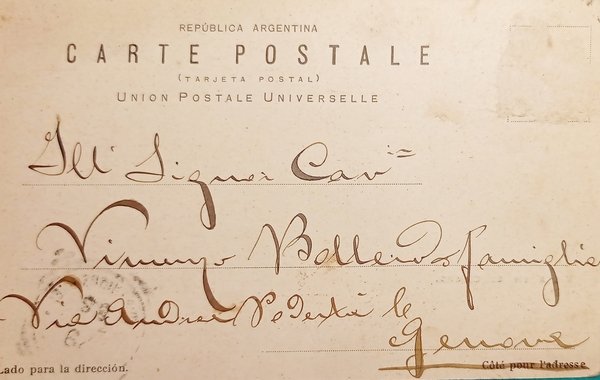 REPÚBLICA ARGENTINA
CARTE POSTALE
(TARJETA POSTAL)
UNION POSTALE UNIVERSELLE
Ill Signor Cav
Vincenzo famiglia
Via Andrea
Genova
Lado para la dirección.
Côté pour l'adresse